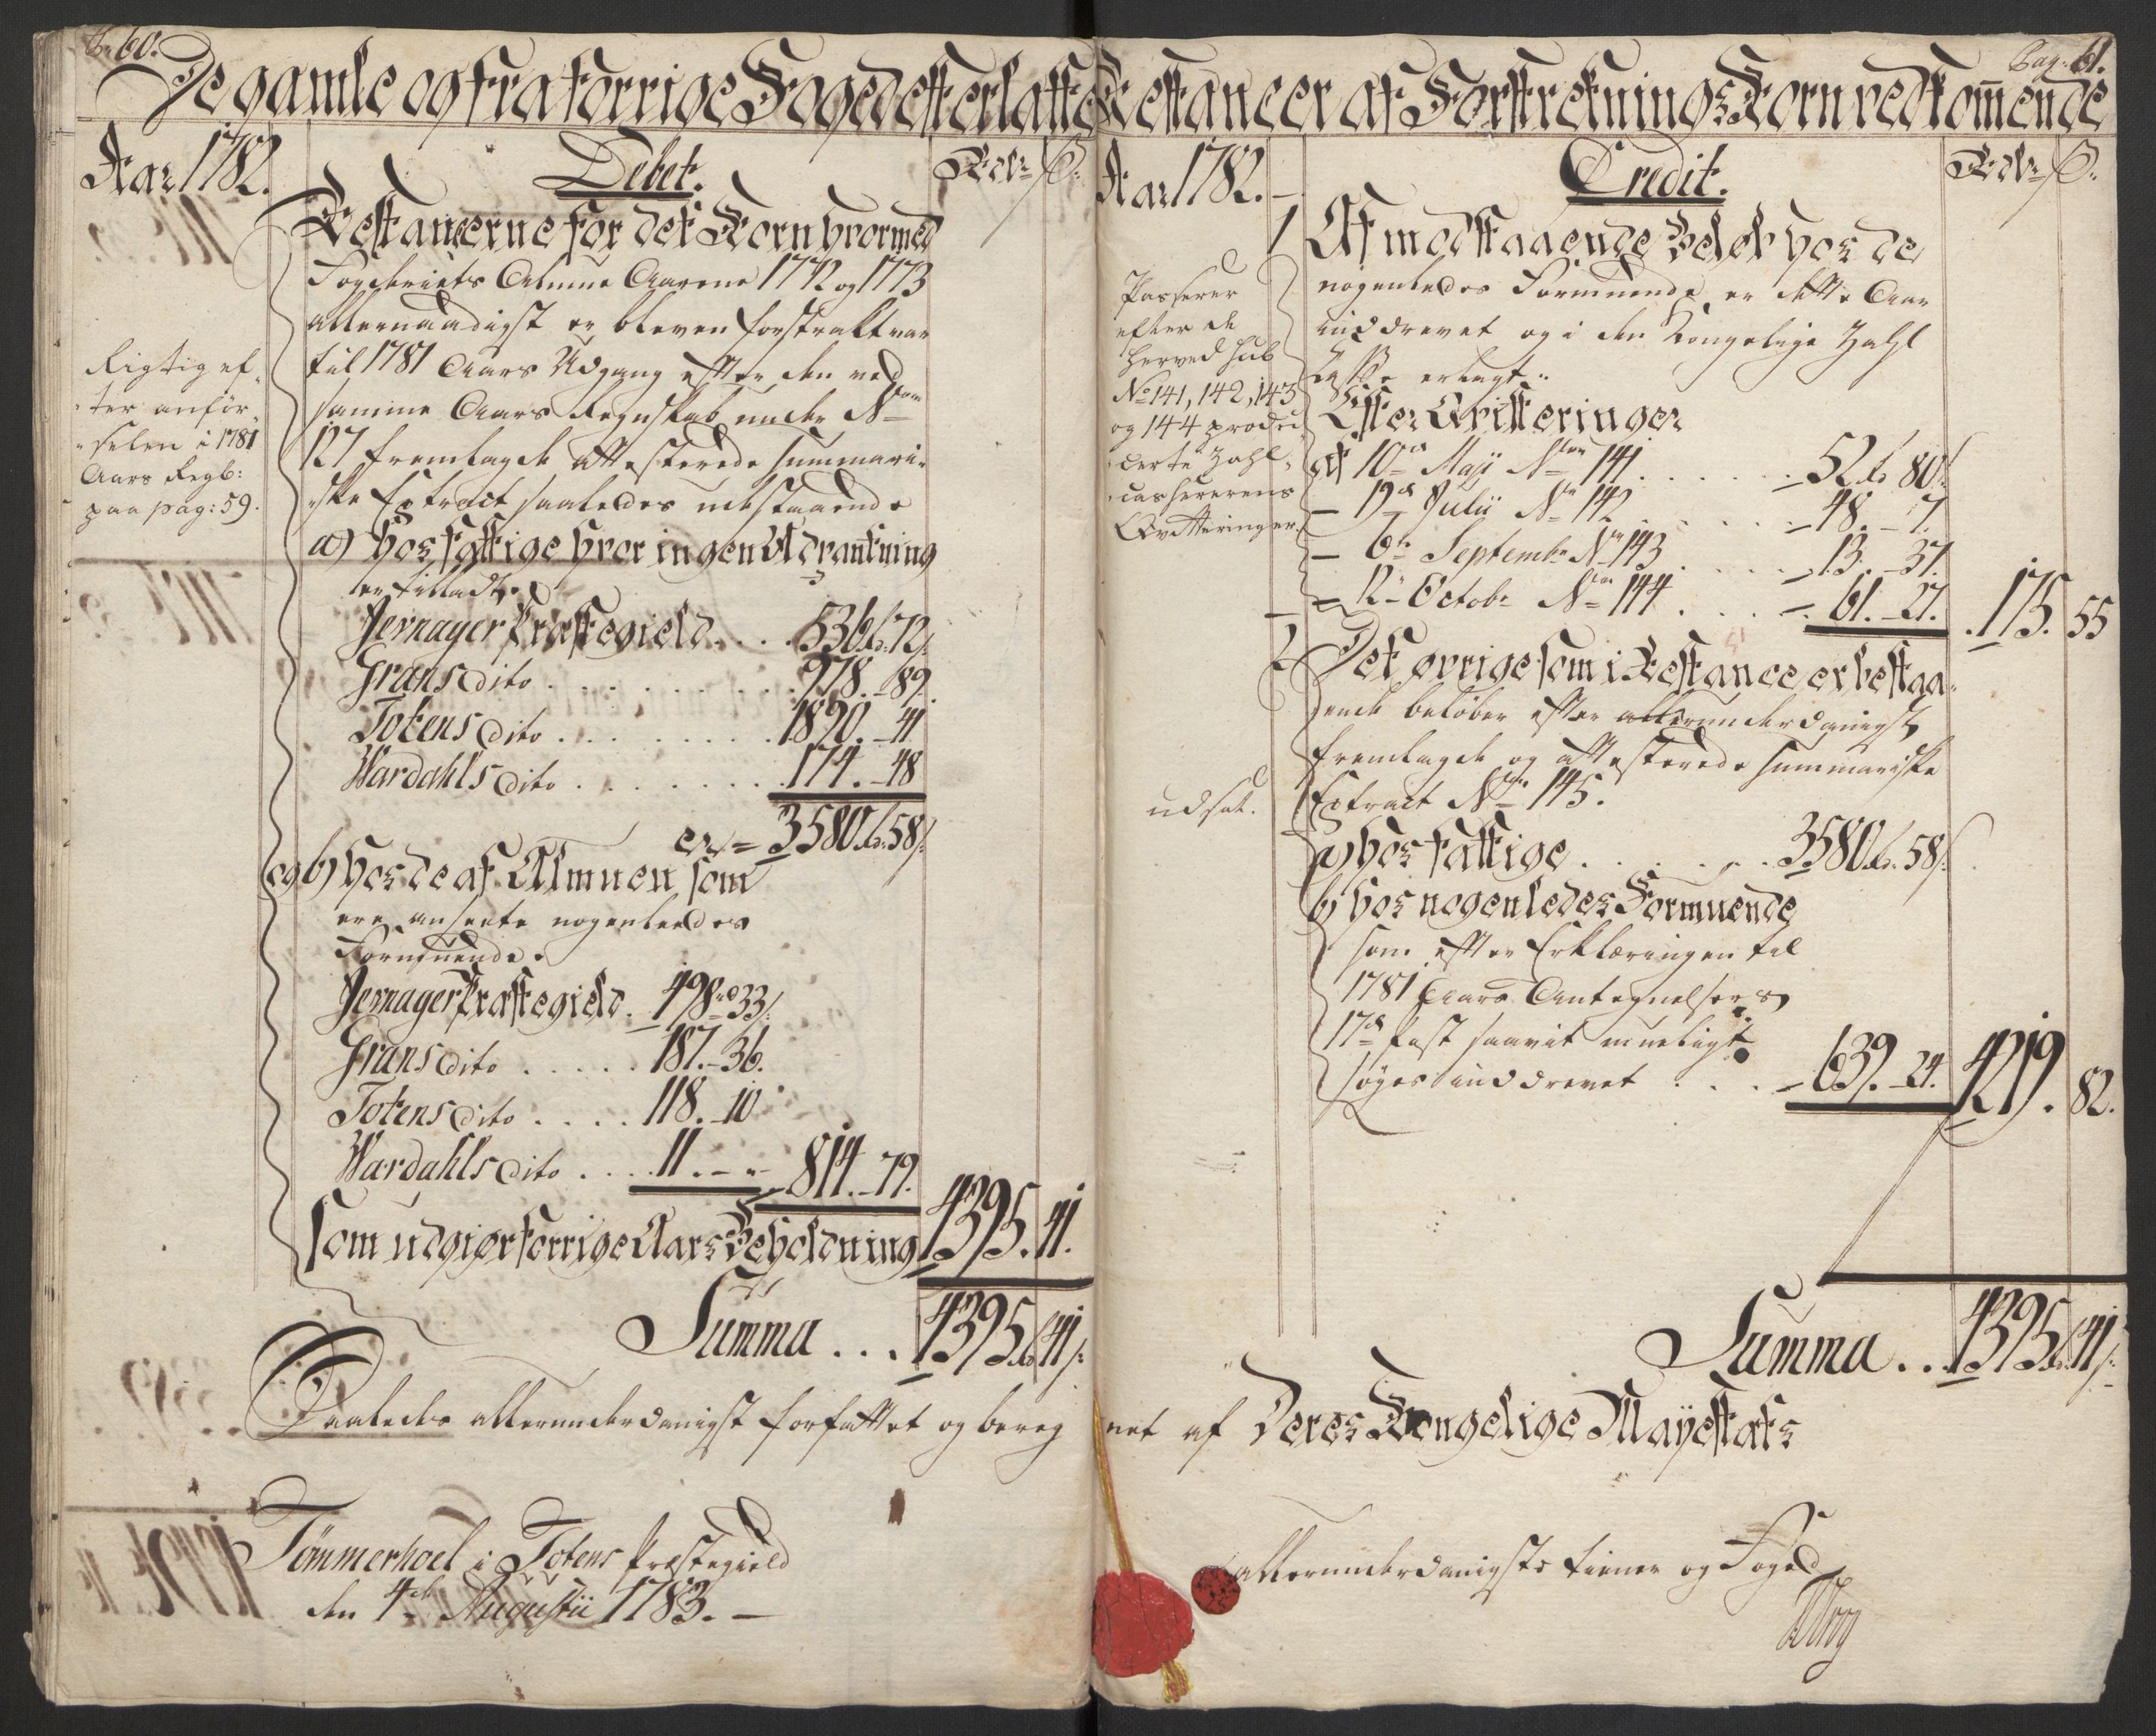 P. 60.
De gamle og fra forrige Foged efterlatte
Aar 1782.
Debet.
Rdlr. ß.
Restancerne for det Korn hvormed
Fogderiets Almue Aarene 1772 og 1773
allernaadigst er bleven forstrakt var
til 1781 Aars Udgang efter den ved
samme Aars Regnskab under No
127 fremlagde attesterede summari-
ske Extract saaledes udestaaende
Rigtig ef-
ter anfør-
selen i 1781
Aars Regb:
paa pag: 59.
a) hos fattige hvor ingen Uddrankning
er tilladt.
Jevnager Præstegield . . 536 rd. 72 ß.
Grans dito . . . . 978. - 89.
Totens dito . . . . 1890. - 41
Wardahls dito . . . . 174. - 48
er = 3580 rd. 58 ß.
og b) hos de af Almuen som
ere anseete nogenleedes
Formuende.
Jevnager Præstegield . 498 rd 33 ß.
Grans dito . . . . 187. - 36.
Totens dito . . . . 118. - 10
Wardahls dito . . . 11. - " - 814. - 79.
som udgiør forrige Aars Beholdning 4395. 41.
Summa . . . 4395 rd 41 ß.
Saaledes allerunderdanigst forfattet og bereg
Tømmerhoel i Totens Præstegield
den 4de Augustii 1783. -
Pag: 61.
Restancer af Forstreknings Korn vedkom̄ende
Aar 1782. -
Credit.
Rdlr. ß.
1 Af modstaaende Beløb hos de
nogenledes Formuende er dette Aar
inddrevet og i den Kongelige Zahl
Casse erlagt.
Efter Qvitteringer
Passerer
efter de
herved sub
No 141, 142, 143
og 144 produ-
certe Zahl-
casererens
Qvitteringer.
af 10de Maji No 141 . . . . - 52 rd 80 ß
- 19de Julii No 142 . . . . - 48. - 7.
- 6te Septembr No 143 . . . . - 13. - 37.
- 12te Octobr No 144 . . . - 61. - 27. 175. 55
2 Det øvrige som i Restance er bestaa-
ende beløber efter allerunderdanigst
fremlagde og attesterede summariske
Extract No 145.
udsat.
a) hos fattige . . . . . 3580 rd. 58 ß.
b) hos nogenledes Formuende
som efter Erklæringen til
1781 Aars Antegnelsers
17de Post saavit mueligt
søges inddrevet . . . - 639. - 24. 4219. 82.
Summa . . 4395 rd 41 ß.
net af Deres Kongelige Mayestæts
allerunderdanigste tiener og Foged